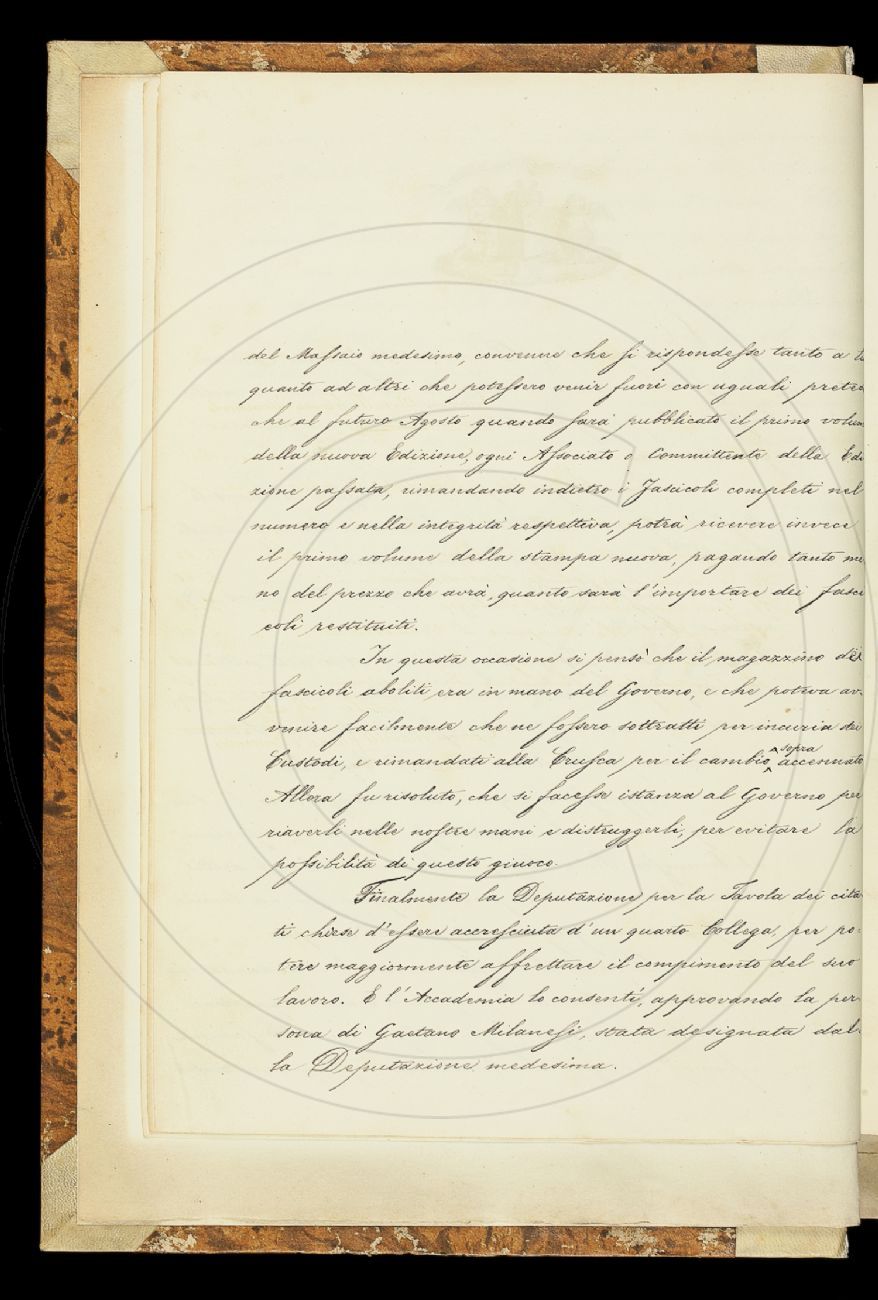 del Massaio medesimo, convenne che si rispondesse tanto a
quanto ad altri che potessero venir fuori con uguali
che al futuro Agosto quando sarà pubblicato il primo volum
della nuova Edizione, ogni Associato o Committente della Edi
zione passata, rimandando indietro i Fascicoli completi nel
numero e nella integrità respettiva, potrà ricevere invece
il primo volume della stampa nuova, pagando tanto me
no del prezzo che avrà, quanto sarà l'importare dei fasci
coli restituiti.
In questa occasione si pensò che il magazzino dei
fascicoli aboliti era in mano del Governo, e che poteva av-
venire facilmente che ne fossero sottratti per incuria dei
Custodi, e rimandati alla Crusca per il cambio sopra accennato
Allora fu risoluto, che si facesse istanza al Governo per
riaverli nelle nostre mani e distruggerli, per evitare la
possibilità di questo giuoco.
Finalmente la Deputazione per la Tavola dei cita-
ti chiese d'essere accresciuta d'un quarto Collega, per po-
tere maggiormente affrettare il compimento del suo
lavoro. E l'Accademia lo consentì, approvando la per-
sona di Gaetano Milanesi, stata designata dal-
la Deputazione medesima.